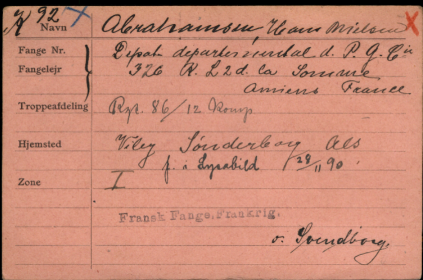 K 92 Navn Abrahamsen, Hans Nielsen
Fange Nr. Depot departemental d. P. G. Cie
Fangelejr 326 R. L2 d. La Somme
Amiens France
Troppeafdeling Rgt. 86/12 Komp
Hjemsted Viby Sønderborg Als
f. i Lysabild 28/11 90.
Zone I
Fransk Fange, Frankrig.
v. Svendborg.